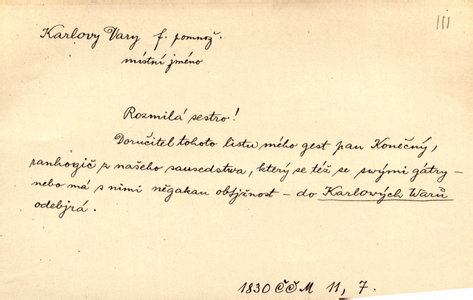 III
Karlovy Vary f. pomnož.
místní jméno
Rozmilá sestro!
Doručitel tohoto listu mého gest pan Konečný,
ranhogič z našeho sausedstva, který se též se swými gátry –
nebo má s nimi něgakau obtjžnost – do Karlových Warů
odebjrá.
1830 ČČM 11, 7.